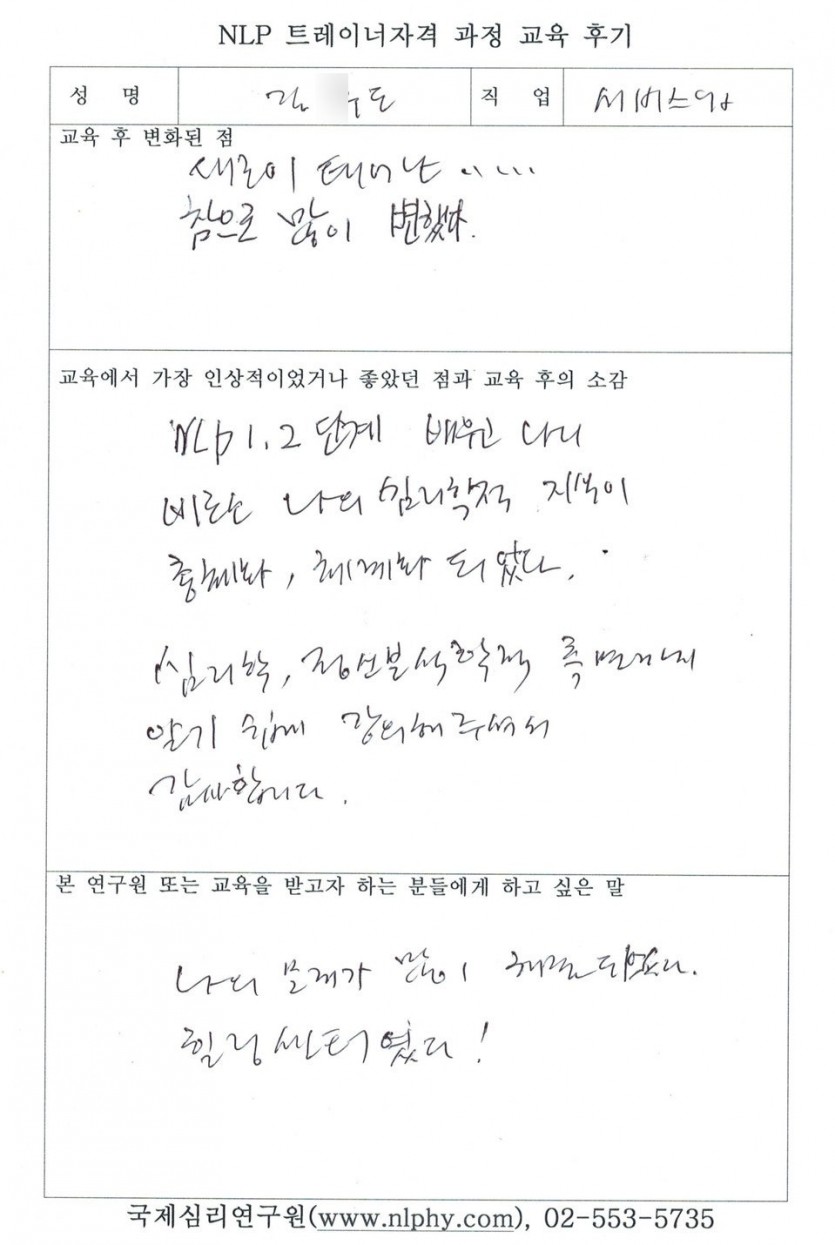 NLP 트레이너자격 과정 교육 후기
성 명 김 도 직 업 서비스업
교육 후 변화된 점
새로이 태어난 .....
참으로 많이 변했다.
교육에서 가장 인상적이었거나 좋았던 점과 교육 후의 소감
NLP 1.2 단계 배우고 나니
비로소 나의 심리학적 지식이
총체화, 체계화 되었다.
심리학, 정신분석학적 측면까지
알기 쉽게 강의해주셔서
감사합니다.
본 연구원 또는 교육을 받고자 하는 분들에게 하고 싶은 말
나의 문제가 많이 해결되었다.
힐링센터였다!
국제심리연구원(www.nlphy.com), 02-553-5735